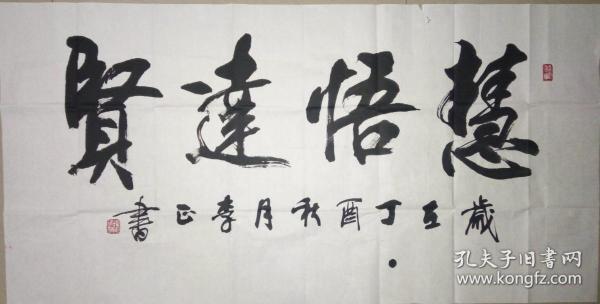 慧悟達賢
歲在丁酉秋月李正書
孔夫子旧书网
www.kongfz.com